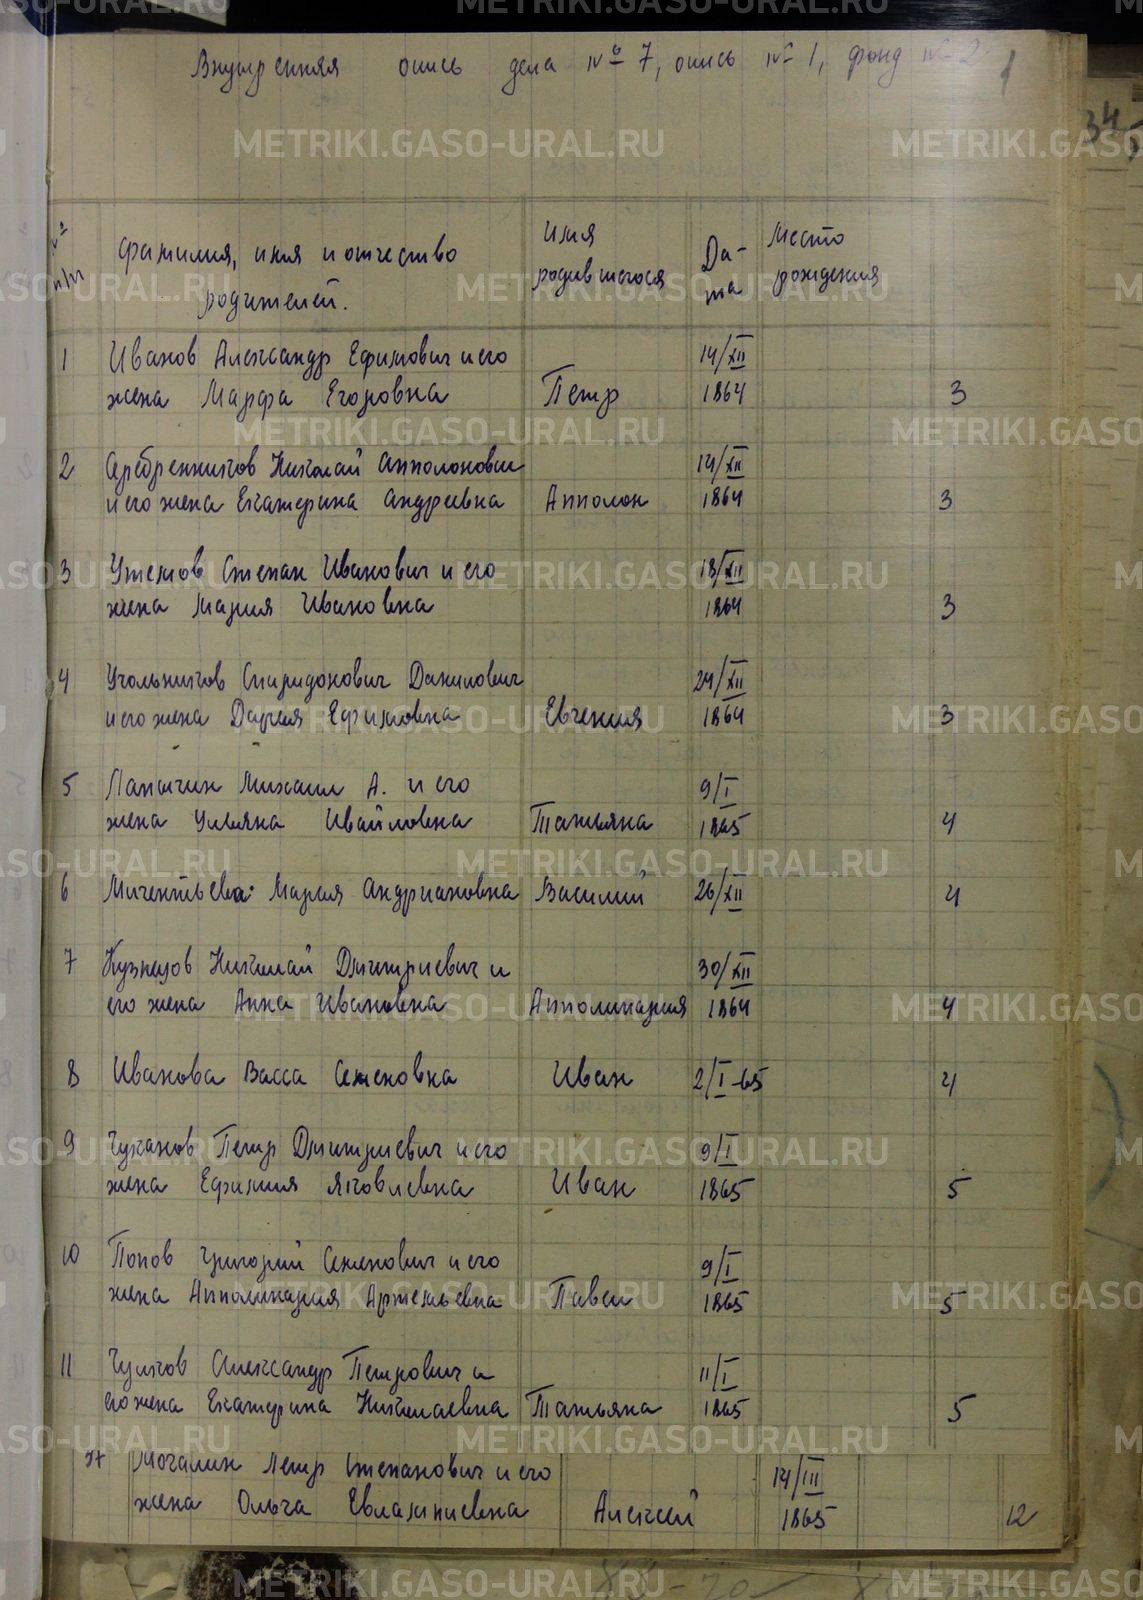 Внутренняя опись дела № 7, опись № 1, фонд № 2
1
34
№ п/п
фамилия, имя и отчество родителей.
имя родившегося
Да-та
Место рождения
1 Иванов Александр Ефимович и его 14/XII
жена Марфа Егоровна Петр 1864 3
2 Серебренников Николай Апполонович 14/XII
и его жена Екатерина Андреевна Апполон 1864 3
3 Утемов Степан Иванович и его 18/XII
жена Мария Ивановна 1864 3
4 Угольников Спиридонович Данилович 24/XII
и его жена Дарья Ефимовна Евгения 1864 3
5 Михаил А. и его 9/I
жена Ульяна Ивайловна Татьяна 1865 4
6 Мария Андриановна Василий 26/XII 4
7 Кузнецов Николай Дмитриевич и 30/XII
его жена Анна Ивановна Апполинария 1864 4
8 Иванова Васса Семеновна Иван 2/I-65 4
9 Чуканов Петр Дмитриевич и его 9/I
жена Ефимия Яковлевна Иван 1865 5
10 Попов Григорий Семенович и его 9/I
жена Апполинария Артемьевна Павел 1865 5
11 Александр Петрович и 11/I
его жена Екатерина Николаевна Татьяна 1865 5
37 Мочалин Петр Степанович и его 14/III
жена Ольга Евлампиевна Алексей 1865 12
METRIKI.GASO-URAL.RU